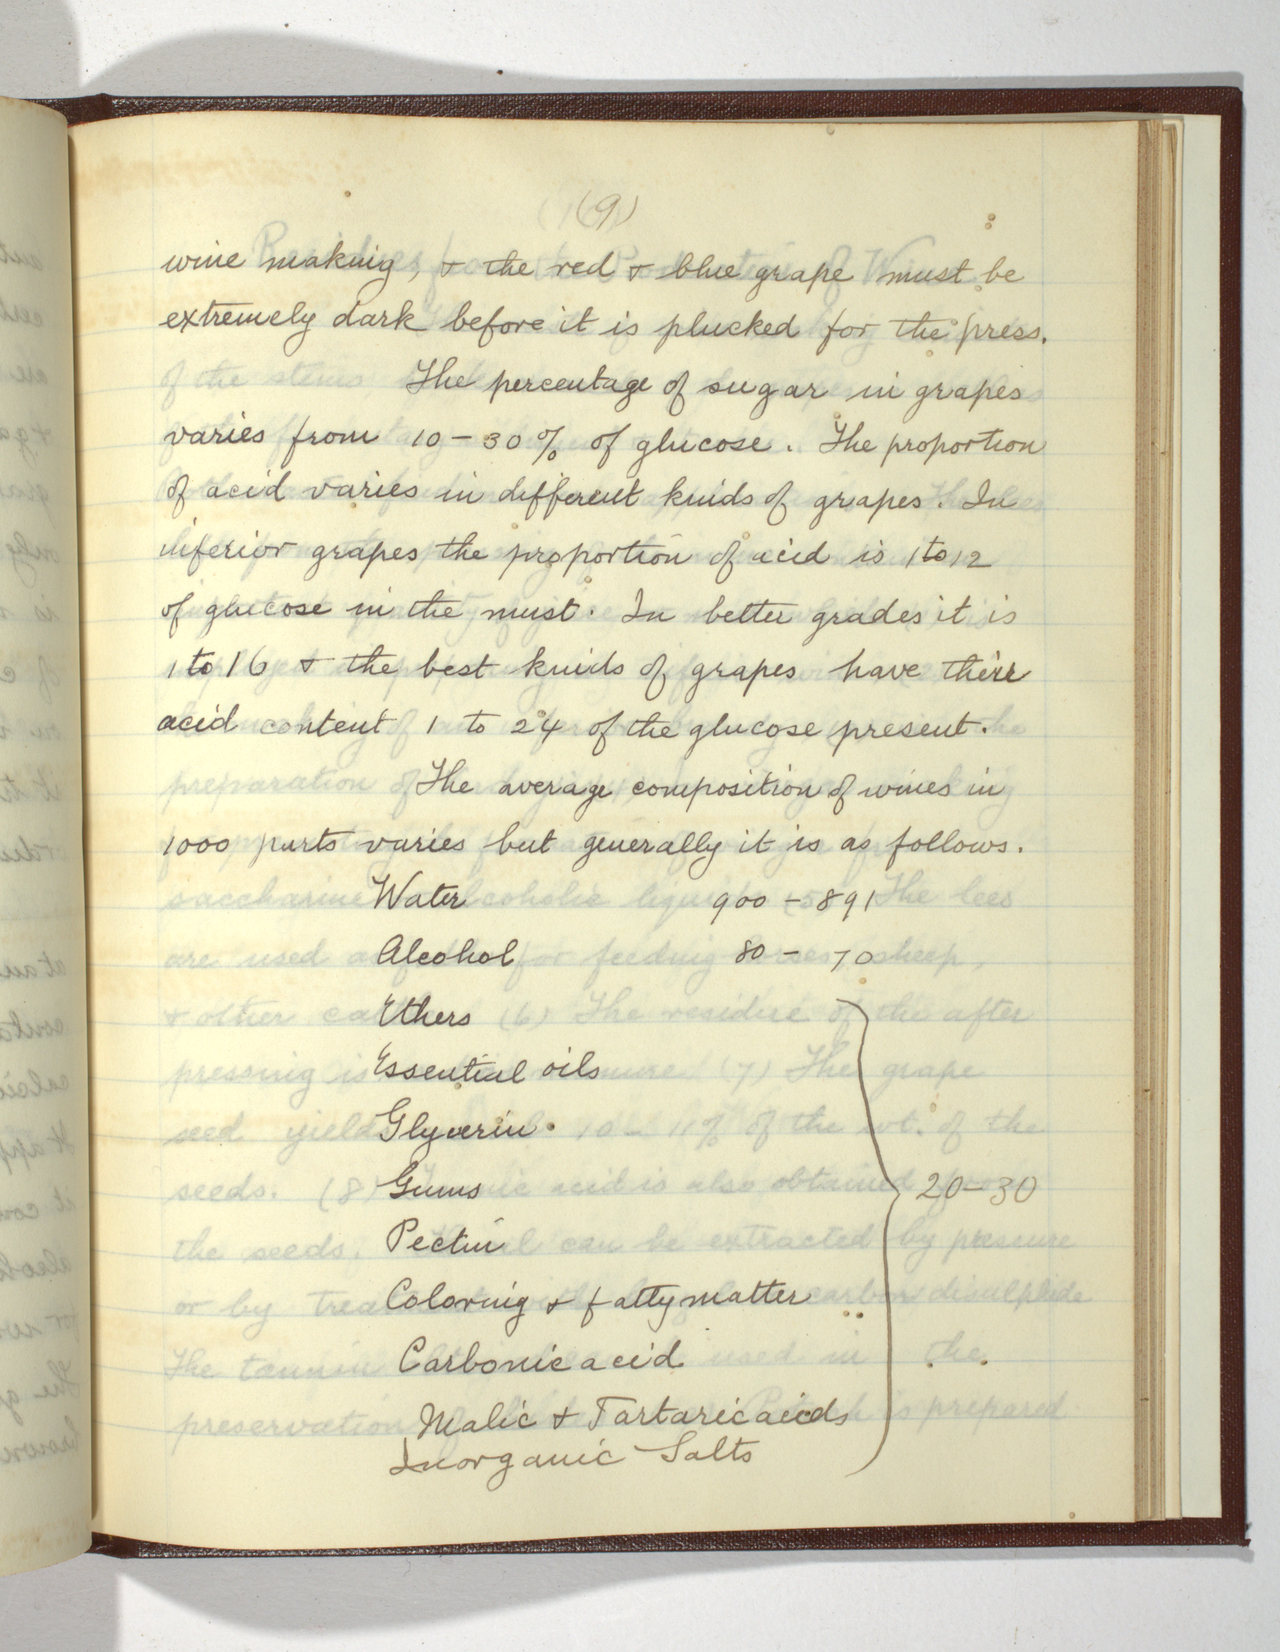 (9)
wine making, & the red & blue grape must be
extremely dark before it is plucked for the press.
The percentage of sugar in grapes
varies from 10-30% of glucose. The proportion
of acid varies in different kinds of grapes. In
inferior grapes the proportion of acid is 1 to 12
of glucose in the must. In better grades it is
1 to 16 & the best kinds of grapes have their
acid content 1 to 24 of the glucose present.
The average composition of wines in
1000 parts varies but generally it is as follows.
Water 900 - 891
Alcohol 80 - 70
Ethers
Essential oils
Glycerin.
Gums 20-30
Pectin
Coloring & fatty matter
Carbonic acid
Malic & Tartaric acids
Inorganic Salts